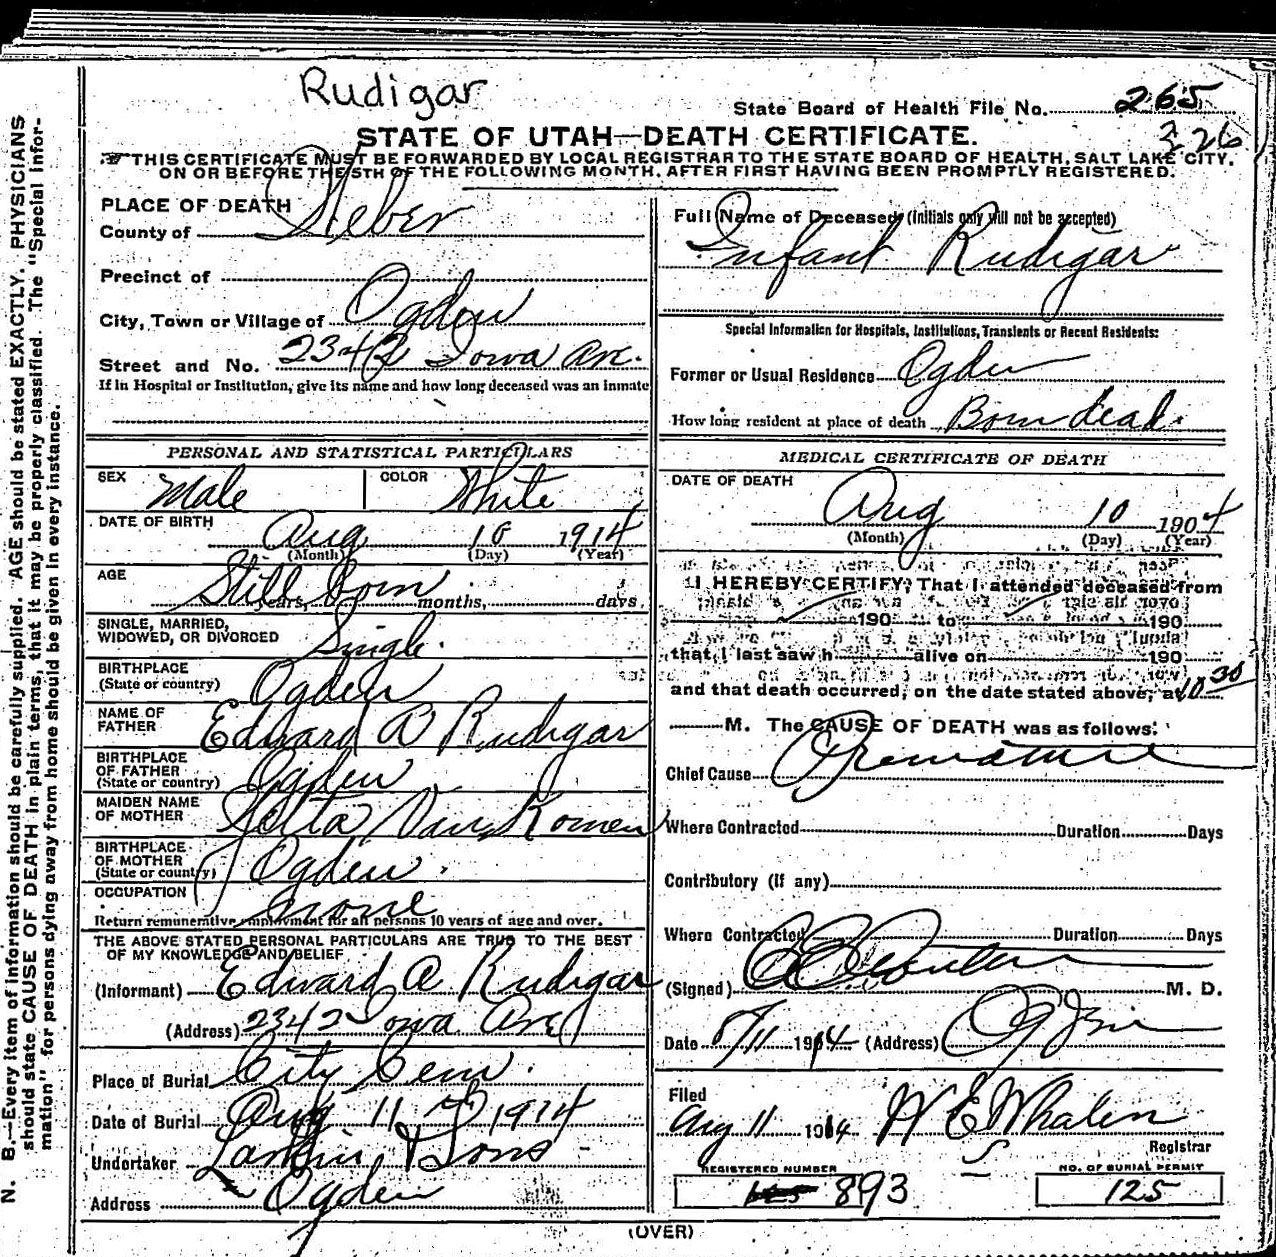 Rudigar
State Board of Health File No. 265
326
STATE OF UTAH—DEATH CERTIFICATE.
THIS CERTIFICATE MUST BE FORWARDED BY LOCAL REGISTRAR TO THE STATE BOARD OF HEALTH, SALT LAKE CITY,
ON OR BEFORE THE 5TH OF THE FOLLOWING MONTH, AFTER FIRST HAVING BEEN PROMPTLY REGISTERED.
PLACE OF DEATH
County of Weber
Precinct of
City, Town or Village of Ogden
Street and No. 2342 Iowa Ave.
If in Hospital or Institution, give its name and how long deceased was an inmate
Full Name of Deceased (initials only will not be accepted)
Infant Rudigar
Special Information for Hospitals, Institutions, Transients or Recent Residents:
Former or Usual Residence Ogden
How long resident at place of death Born dead.
PERSONAL AND STATISTICAL PARTICULARS
SEX Male COLOR White
DATE OF BIRTH Aug 10 1914
(Month) (Day) (Year)
AGE Still born
years, months, days
SINGLE, MARRIED,
WIDOWED, OR DIVORCED Single.
BIRTHPLACE
(State or country) Ogden
NAME OF
FATHER Edward A Rudigar
BIRTHPLACE
OF FATHER
(State or country) Ogden
MAIDEN NAME
OF MOTHER Van Komen
BIRTHPLACE
OF MOTHER
(State or country) Ogden.
OCCUPATION none
Return remunerative employment for all persons 10 years of age and over.
THE ABOVE STATED PERSONAL PARTICULARS ARE TRUE TO THE BEST
OF MY KNOWLEDGE AND BELIEF
(Informant) Edward A Rudigar
(Address) 2342 Iowa Ave
Place of Burial City Cem.
Date of Burial Aug 11 1914
Undertaker Larkin & Sons
Address Ogden
MEDICAL CERTIFICATE OF DEATH
DATE OF DEATH
Aug 10 1904
(Month) (Day) (Year)
I HEREBY CERTIFY, That I attended deceased from
190 to 190
that I last saw h alive on 190
and that death occurred, on the date stated above, at 10 30
M. The CAUSE OF DEATH was as follows:
Chief Cause Premature
Where Contracted Duration Days
Contributory (if any)
Where Contracted Duration Days
(Signed) M. D.
Date 8/11 1914 (Address)
Filed
Aug 11 1914 H E Whalen
Registrar
REGISTERED NUMBER
893
NO. OF BURIAL PERMIT
125
(OVER)
N. B.—Every item of information should be carefully supplied. AGE should be stated EXACTLY. PHYSICIANS
should state CAUSE OF DEATH in plain terms, that it may be properly classified. The "Special Infor-
mation" for persons dying away from home should be given in every instance.